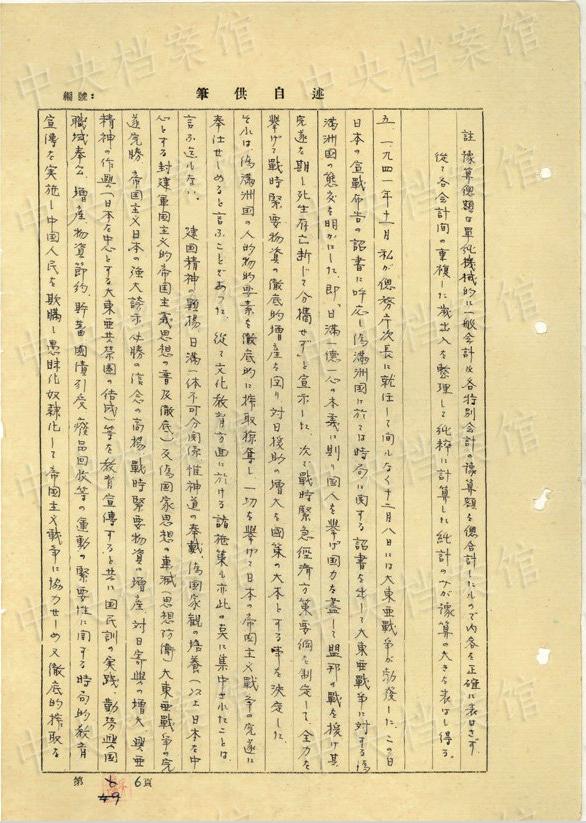 述自供筆
編號：
註 豫算總額は單純機械的に一般会計及各特別会計の豫算額を總合計したもので内容を正確に表はさず
従て各会計间の重複した歳出入を整理して純粋に計算した純計の方が豫算の大きさを表はし得る。
五、一九四一年十一月 私が總務庁次長に就任して间もなく十二月八日には大東亜戦爭が勃發した。この日
日本の宣戰布告の詔書に呼応し偽滿洲国に於ては時局に関する詔書を出して大東亜戰爭に対する偽
滿洲国の態度を明かにした。即「日滿一億一心の本義に則り国人を挙げ国力を盡して盟邦の戰を援け其
完遂を期し死生存亡断じて分携せず」と宣示した。次で戰時緊急經濟方策要綱を制定して、全力を
挙げて戰時緊要物資の徹底的増産を図り対日援助の増大を国策の大本とする事を決定した。
それは偽滿洲国の人的物的要素を徹底的に搾取掠奪し一切を挙げて日本の帝国主义戰爭の完遂に
奉仕せしめると言ふことであった。従て文化教育方面に於ける諸施策も亦此の点に集中されたことは
言ふ迄もない。 建国精神の顕揚、日滿一体不可分関係惟神道の奉戴、偽國家観の培養（以上日本を中
心とする封建軍国主义的帝国主義思想の普及徹底）反偽国家思想の東滅（思想防衛）大東亜戰爭の完
遂完勝、帝国主义日本の強大誇示、必勝の信念の高揚、戰時緊要物資の増産、対日寄與の増大、興亜
精神の作興（日本を中心とする大東亜共榮圏の結成）等を教育宣傳すると共に国民訓の実践、勤労興国
職域奉公、増産物資節約、貯蓄國債引受、廢品回收等の運動の緊要性に関する時局的教育
宣傳を実施し中国人民を欺瞞し愚昧化奴隷化して帝国主义戰爭に協力せしめ又徹底的搾取を
第 6 頁
#9
中央档案馆